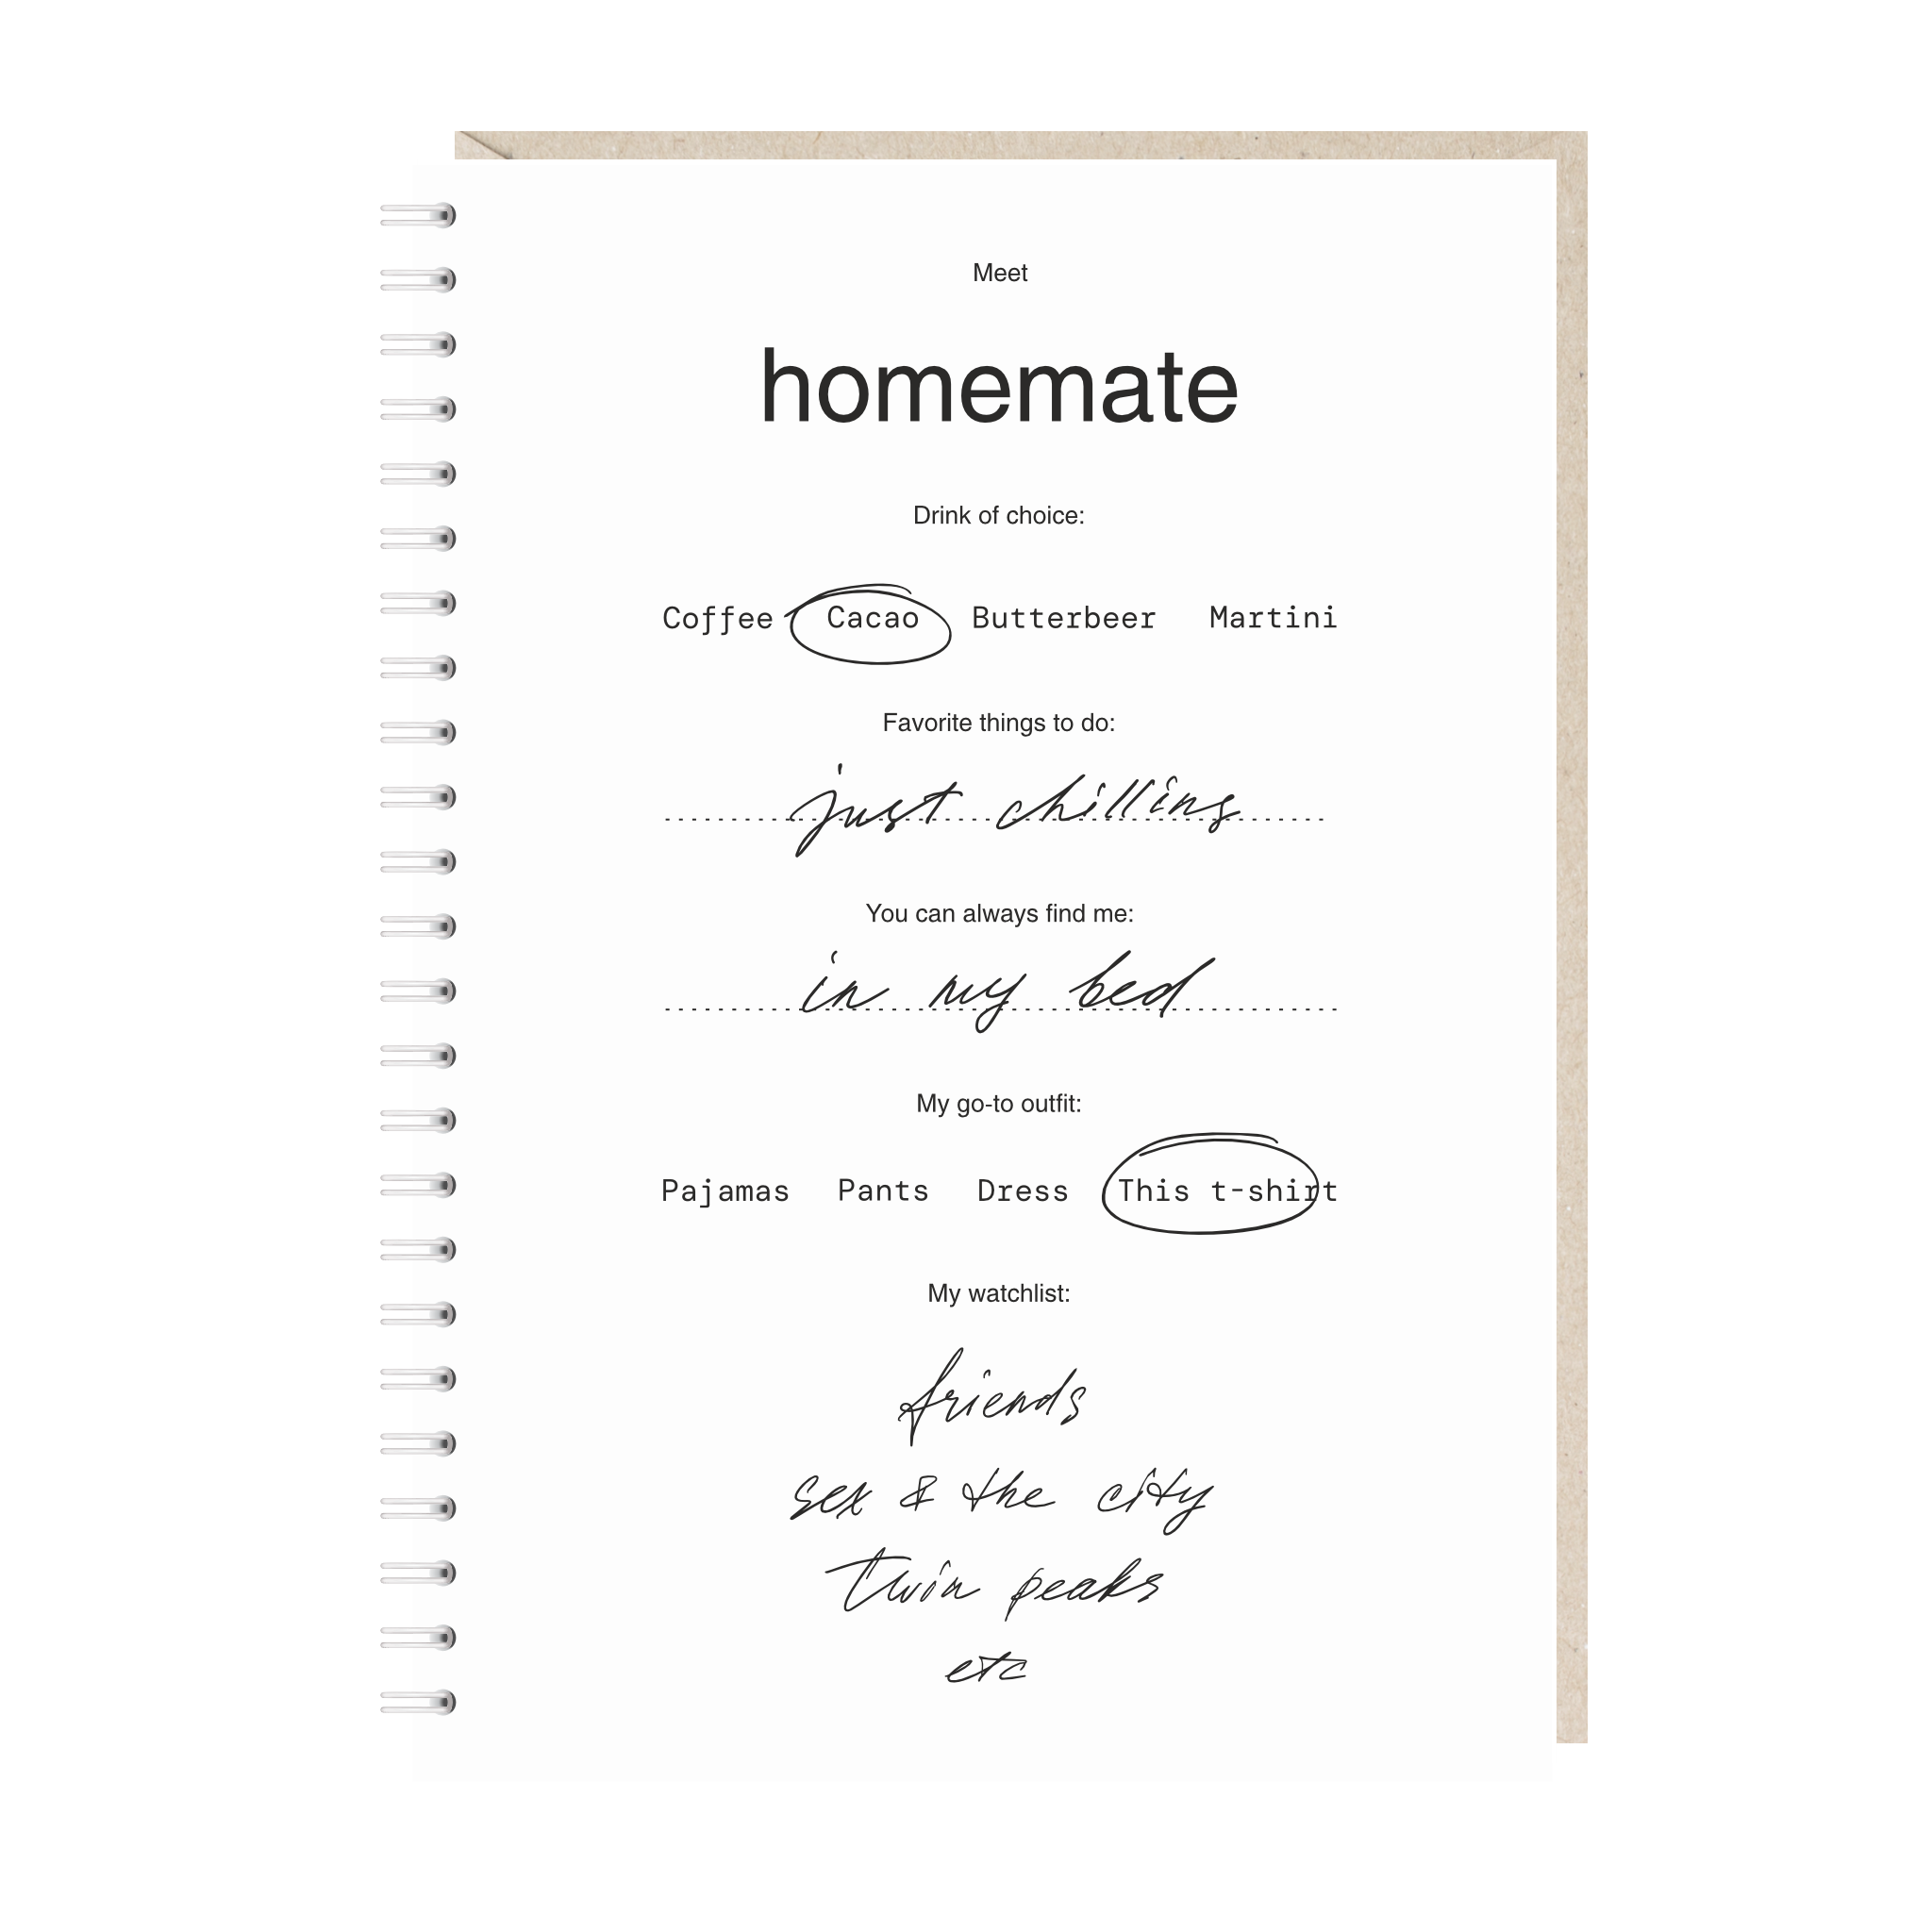 Meet
homemate
Drink of choice:
Coffee Cacao Butterbeer Martini
Favorite things to do:
just chilling
You can always find me:
in my bed
My go-to outfit:
Pajamas Pants Dress This t-shirt
My watchlist:
friends
sex & the city
twin peaks
etc